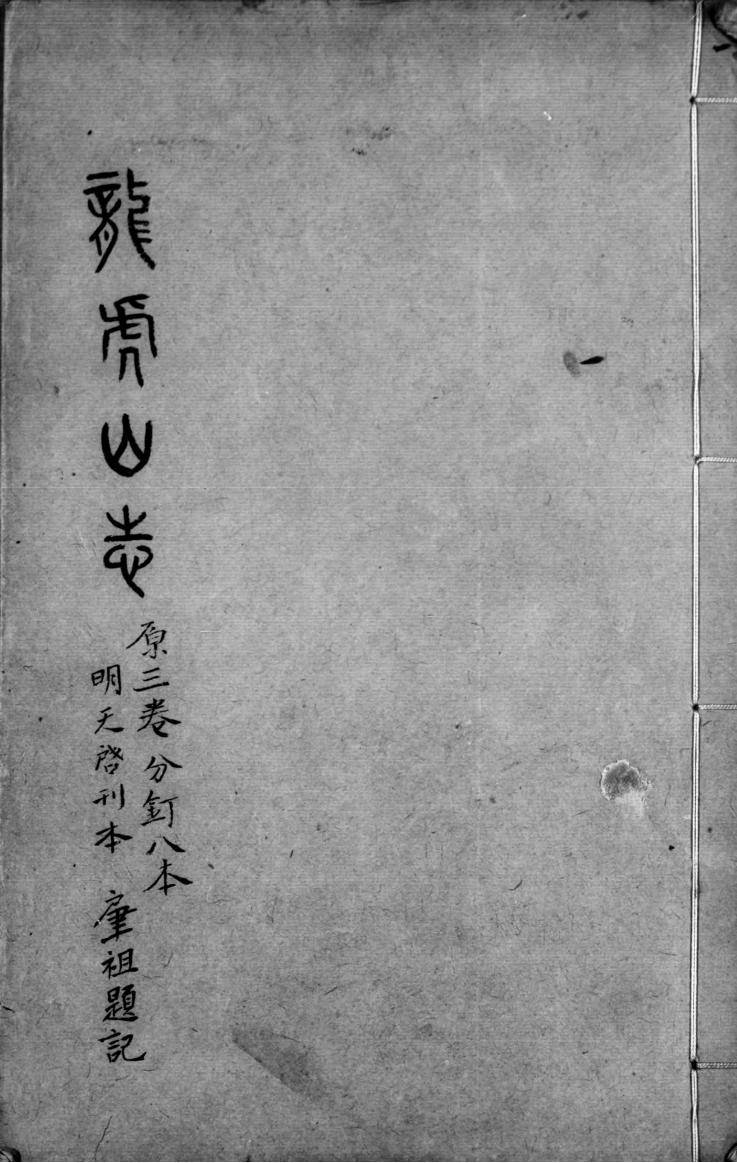 龍虎山志
原三卷分釘八本
明天啓刊本 肇祖題記